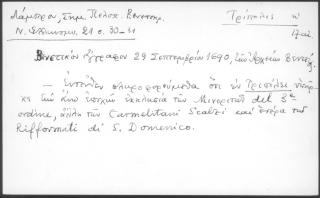 Λάμπρου, Σημ. Πελοπ. Βενετοκρ. Τρίπολις
Ν. Ἑλληνομν. 21 σ. 30-31
Βενετικὸν ἔγγραφον 29 Σεπτεμβρίου 1690, τῶν Ἀρχείων Βενετίας.
— Ἐντεῦθεν πληροφορούμεθα ὅτι ἐν Τριπόλει ὑπῆρ-
χε καὶ ἐκκλησία τῶν Μινοριτῶν del 3º
ordine, ἄλλη τῶν Carmelitani Scalzi καὶ ἑτέρα τῶν
Riformati di S. Domenico.